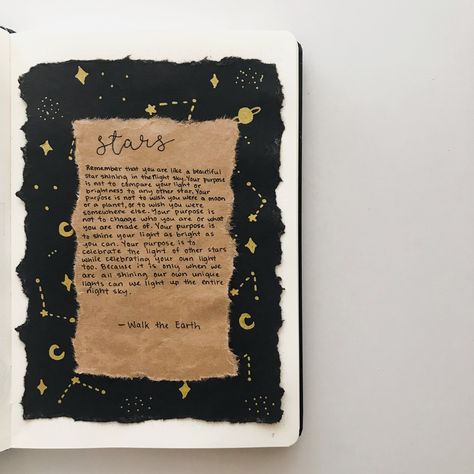 stars
Remember that you are like a beautiful
star shining in the night sky. Your purpose
is not to compare your light or
brightness to any other star. Your
purpose is not to wish you were a moon
or a planet, or to wish you were
somewhere else. Your purpose is
not to change who you are or what
you are made of. Your purpose is
to shine your light as bright as
you can. Your purpose is to
celebrate the light of other stars
while celebrating your own light
too. Because it is only when we
are all shining our own unique
lights can we light up the entire
night sky.
— Walk the Earth